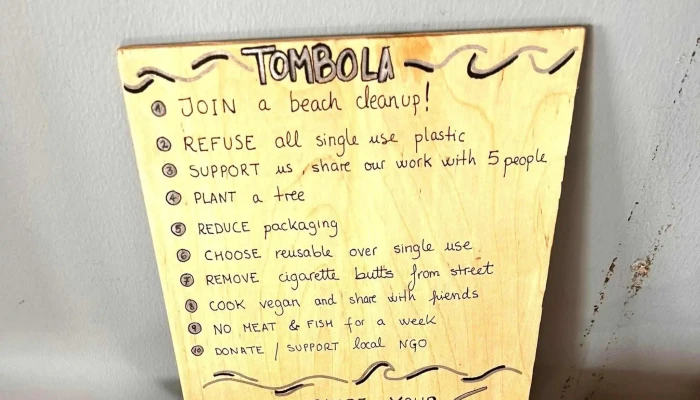 TOMBOLA
1 JOIN a beach cleanup!
2 REFUSE all single use plastic
3 SUPPORT us, share our work with 5 people
4 PLANT a tree
5 REDUCE packaging
6 CHOOSE reusable over single use
7 REMOVE cigarette butts from street
8 COOK vegan and share with friends
9 NO MEAT & FISH for a week
10 DONATE / SUPPORT local NGO
YOUR